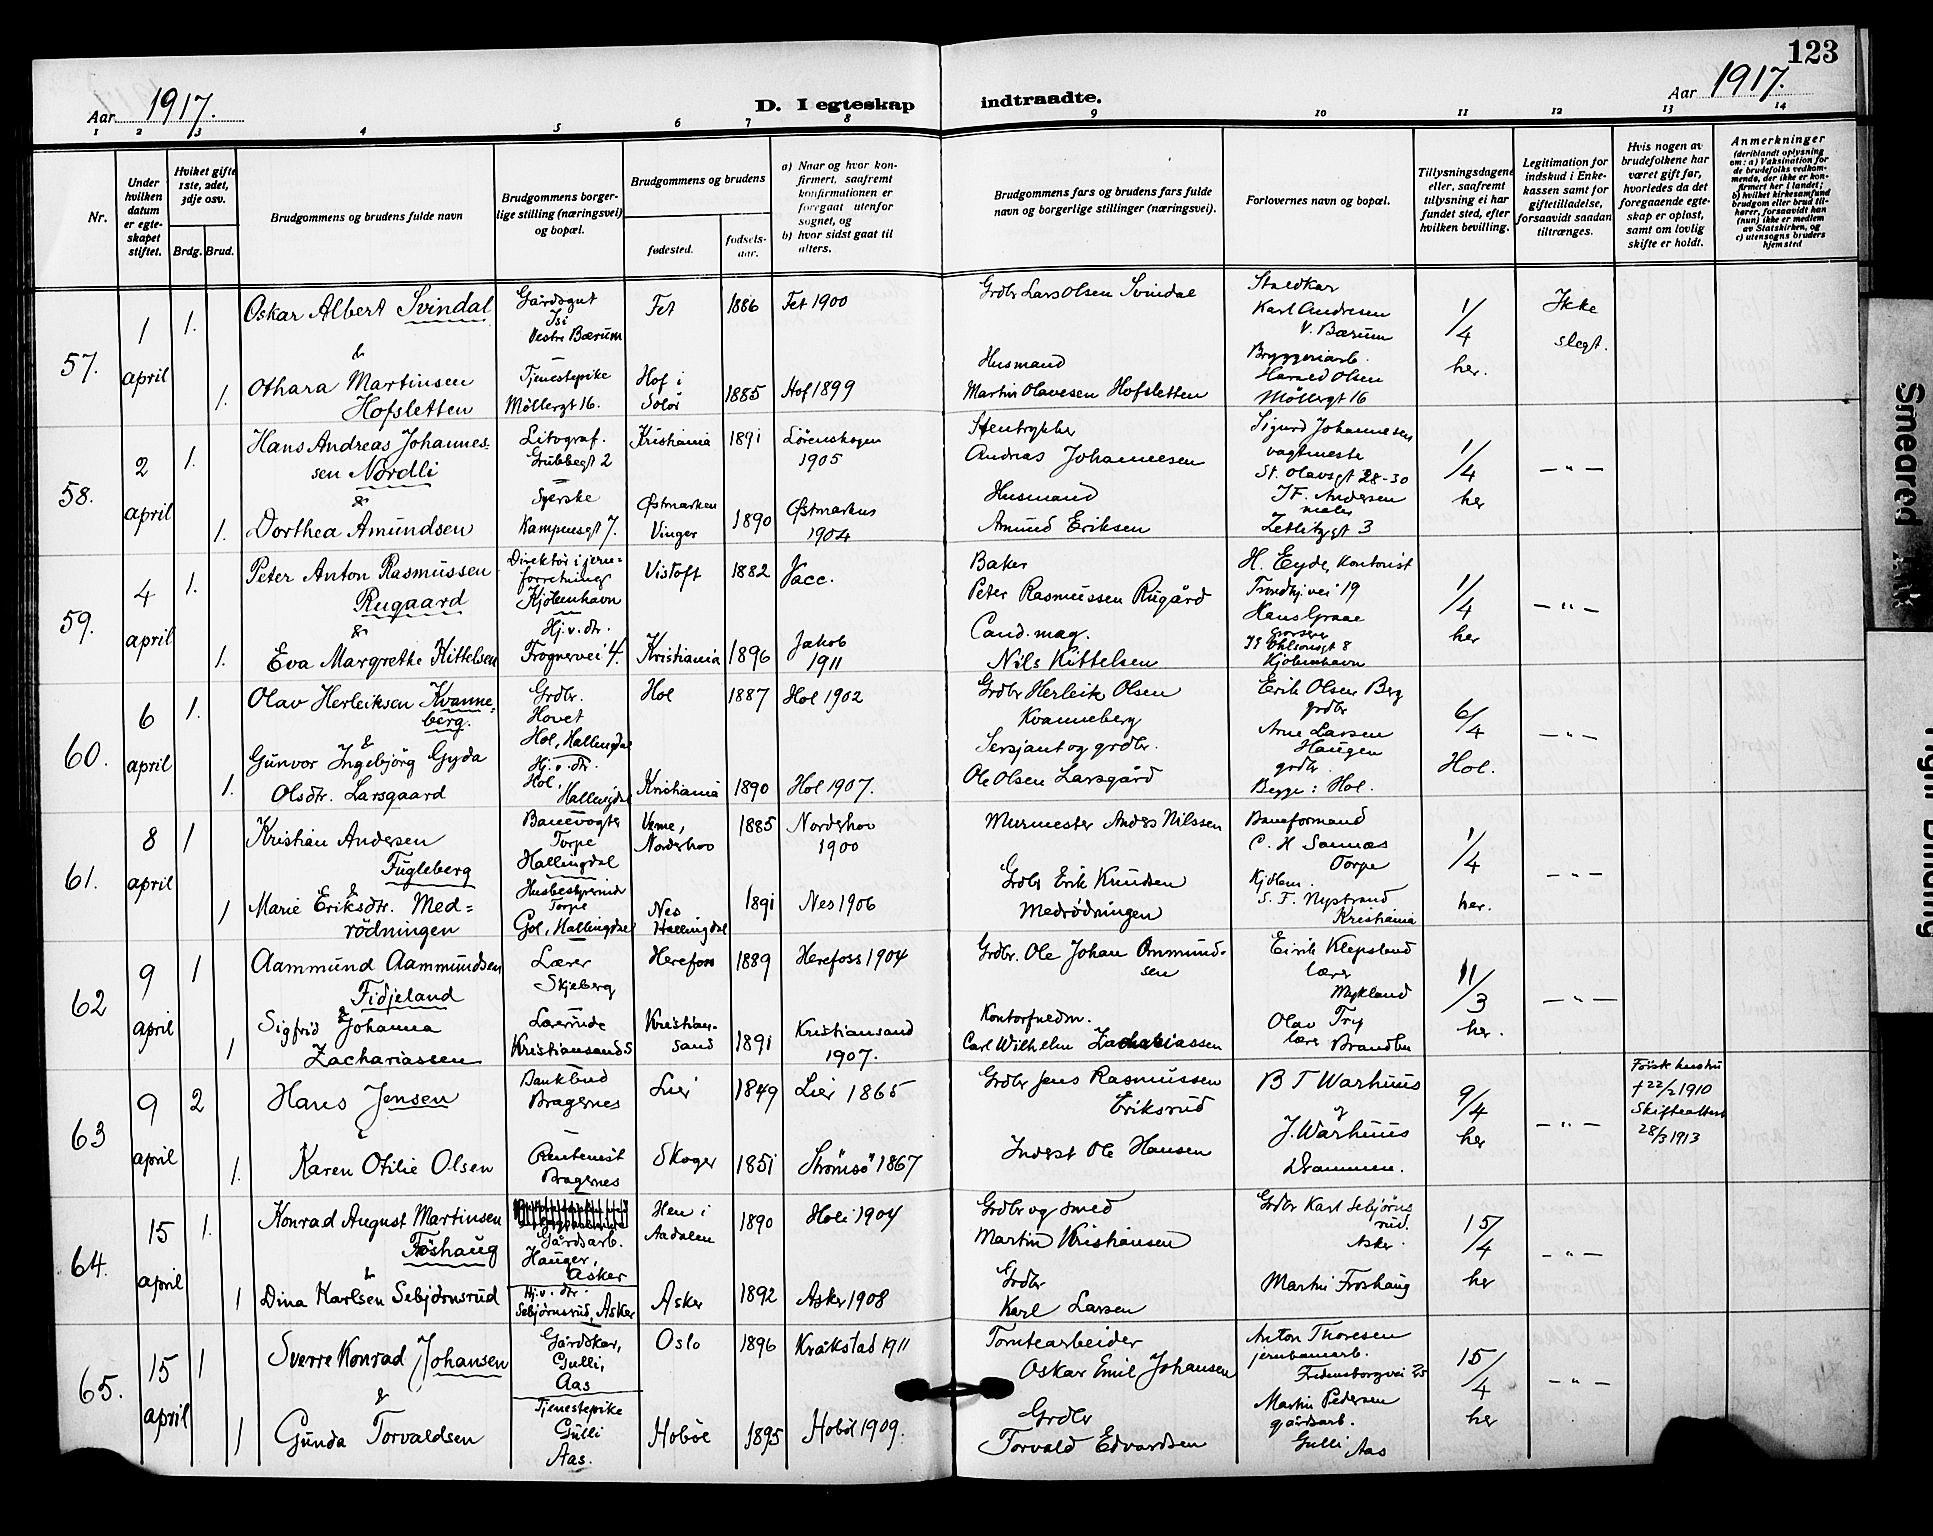 123
Aar 1917.
D. I egteskap indtraadte.
Aar 1917.
1 2 3 4 5 6 7 8 9 10 11 12 13 14
Nr.
Under hvilken datum er egteskapet stiftet.
Hviket gifte 1ste, 2det, 3dje osv.
Brdg. Brud.
Brudgommens og brudens fulde navn
Brudgommens borgerlige stilling (næringsvei) og bopæl.
Brudgommens og brudens
fødested.
fødselsaar.
a) Naar og hvor konfirmert, saafremt konfirmationen er foregaat utenfor sognet, og
b) hvor sidst gaat til alters.
Brudgommens fars og brudens fars fulde navn og borgerlige stillinger (næringsvei).
Forlovernes navn og bopæl.
Tillysningsdagene eller, saafremt tillysning ei har fundet sted, efter hvilken bevilling.
Legitimation for indskud i Enkekassen samt for giftetilladelse, forsaavidt saadan tiltrænges.
Hvis nogen av brudefolkene har været gift før, hvorledes da det foregaaende egteskap er opløst, samt om lovlig skifte er holdt.
Anmerkninger
(deriblandt oplysning om: a) Vaksination for de brudefolks vedkommende, der ikke er konfirmert her i landet; b) hvilket kirkesamfund brudgom eller brud tilhører, forsaavidt han (hun) ikke er medlem av Statskirken, og c) utensogns bruders hjemsted
57.
1 april
1.
Oskar Albert Svindal
Gårdsgut
Isi
Vestre Bærum
Fet
1886
Fet 1900
Grdbr Lars Olsen Svindal
Staldkar
Karl Andresen
V. Bærum
1/4
her.
Ikke
slegt.
&
1.
Othara Martinsen
Hofsletten
Tjenestepike
Möllergt 16.
Hof i
Solör
1885
Hof 1899
Husmand
Martin Olavesen Hofsletten
Bryggeriarb.
Harald Olsen
Möllergt 16
58.
2 april
1.
Hans Andreas Johannes-
sen Nordli
Litograf.
Grübbegt 2
Kristiania
1891
Lørenskogen
1905
Stentrykker
Andreas Johannesen
Sigurd Johannesen
vagtmester
St. Olavsgt 28-30
1/4
her
— " —
&
1.
Dorthea Amundsen
Syerske
Kampensgt 7.
Østmarken
Vinger
1890
Østmarkus
1904
Husmand
Amund Eriksen
J F. Andersen
maler
Zetlitzgt 3
59.
4 april
1.
Peter Anton Rasmussen
Rugaard
Direktör i jern-
forretning
Kjöbenhavn
Vistoft
1882
Vacc.
Baker
Peter Rasmussen Rugård
H. Eyde, kontorist
Trondhj.vei 19
1/4
her
— " —
&
1.
Eva Margrethe Kittelsen
Hj.v. dtr.
Frognervei 4.
Kristiania
1896
Jakob
1911
Cand. mag.
Nils Kittelsen
Hans Graae
grosserer
Kjöbenhavn
60.
6 april
1.
Olav Herleiksen Kvanne-
berg.
Grdbr.
Hovet
Hol, Hallingdal
Hol
1887
Hol 1902
Grdbr Herleik Olsen
Kvanneberg
Erik Olsen Berg
grdbr
6/4
Hol.
— " —
&
1.
Gunvor Ingebjörg Gyda
Olsdtr. Larsgaard
Hj. v. dtr.
Hol,
Hallingdal
Kristiania
1890
Hol 1907.
Sersjant og grdbr.
Ole Olsen Larsgård
Arne Larsen
Haugen
grdbr
Begge: Hol.
61.
8 april
1
Kristian Andersen
Fugleberg
Banevogter
Torpe
Hallingdal
Veme,
Norderhov
1885
Norderhov
1900
Murmester Anders Nilssen
Baneformand
C. H Sannæs
Torpe
1/4
her.
— " —
&
1
Marie Eriksdtr. Med=
rödningen
Husbestyrerinde
Torpe
Gol, Hallingdal
Nes
Hallingdal
1891
Nes 1906
Grdbr Erik Knudsen
Medrödningen
S. F. Nystrand
Kristiania
62
9 april
1
Aammund Aammundsen
Fidjeland
Lærer
Skjeberg
Herefoss
1889
Herefoss 1904
Grdbr. Ole Johan Ommund-
sen
Eirik Klepsland
lærer
Mykland
11/3
her.
— " —
&
1
Sigfrid Johanna
Zachariassen
Lærerinde
Kristiansand S
Kristian-
sand
1891
Kristiansand
1907.
Kontorfuldm.
Carl Wilhelm Zachariassen
Olav Try
lærer Brandbu
63
9 april
2
Hans Jensen
Bankbud
Bragernes
Lier
1849
Lier 1865
Grdbr Jens Rasmussen
Eriksrud
B T Warhuus
og
9/4
her
— " —
Forrige hustru
† 22/2 1910
Skifteattest
28/3 1913
&
1.
Karen Otilie Olsen
Rentenist
Bragernes
Skoger
1851
Strömsö 1867
Inderst Ole Hansen
J. Warhuus
Drammen.
64.
15 april
1.
Konrad August Martinsen
Froshaug
Gårdsarb.
Hauger,
Asker
Hen i
Aadalen
1890
Hole 1904
Grdbr og smed
Martin Kristiansen
Grdbr Karl Sebjörns
rud.
Asker.
15/4
her
— " —
&
1
Dina Karlsen Sebjörnsrud
Hj. v. dtr.
Sebjørnsrud, Asker
Asker
1892
Asker 1908
Grdbr
Karl Larsen
Martin Froshaug
65.
15 april
1
Sverre Konrad Johansen
Gårdskar,
Gulli,
Aas
Oslo
1896
Kråkstad 1911
Tomtearbeider
Oskar Emil Johansen
Anton Thoresen
jernbanearb.
Fredensborgvei 25
15/4
her
— " —
&
1
Gunda Torvaldsen
Tjenestepike
Gulli
Aas.
Hoböl
1895
Hoböl 1909.
Grdbr
Torvald Edvardsen
Martin Pedersen
gårdsarb.
Gulli Aas
Smeared Ink
Tight Binding